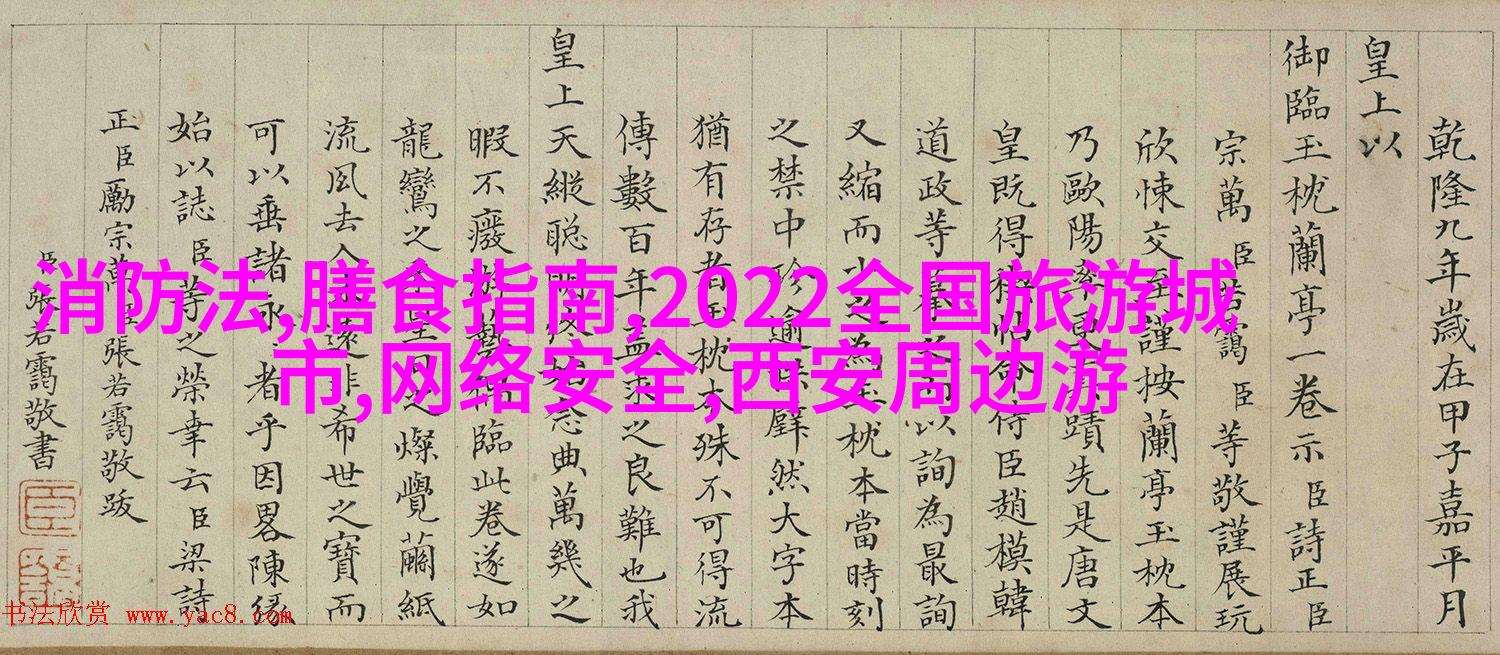 乾隆九年歲在甲子嘉平月
皇上以
御臨玉枕蘭亭一卷示臣詩正臣
宗萬臣若靄臣等敬謹展玩
欣悚交至謹按蘭亭玉枕本
乃歐陽率更真蹟先是唐文
皇既得稧帖命侍臣趙模韓
道政等摹以詢為最詢
又縮而小之為玉枕本當時刻
之禁中珍逾珠璧然大字本
猶有存者玉枕本殊不可得流
傳數百年益求之良難也我
皇上天縱聰明終始念典萬幾之
暇不癈游藝偶臨此卷遂如
龍鸞之燦覺繭紙
流風去人遠非希世之寶而
可以垂諸永者乎因畧陳緣
始以誌臣等之榮幸云臣梁詩
正臣勵宗萬臣張若靄敬跋
臣張若靄敬書
消防法,膳食指南,2022全国旅游城
市,网络安全,西安周边游
书法欣赏 www.yac8.com